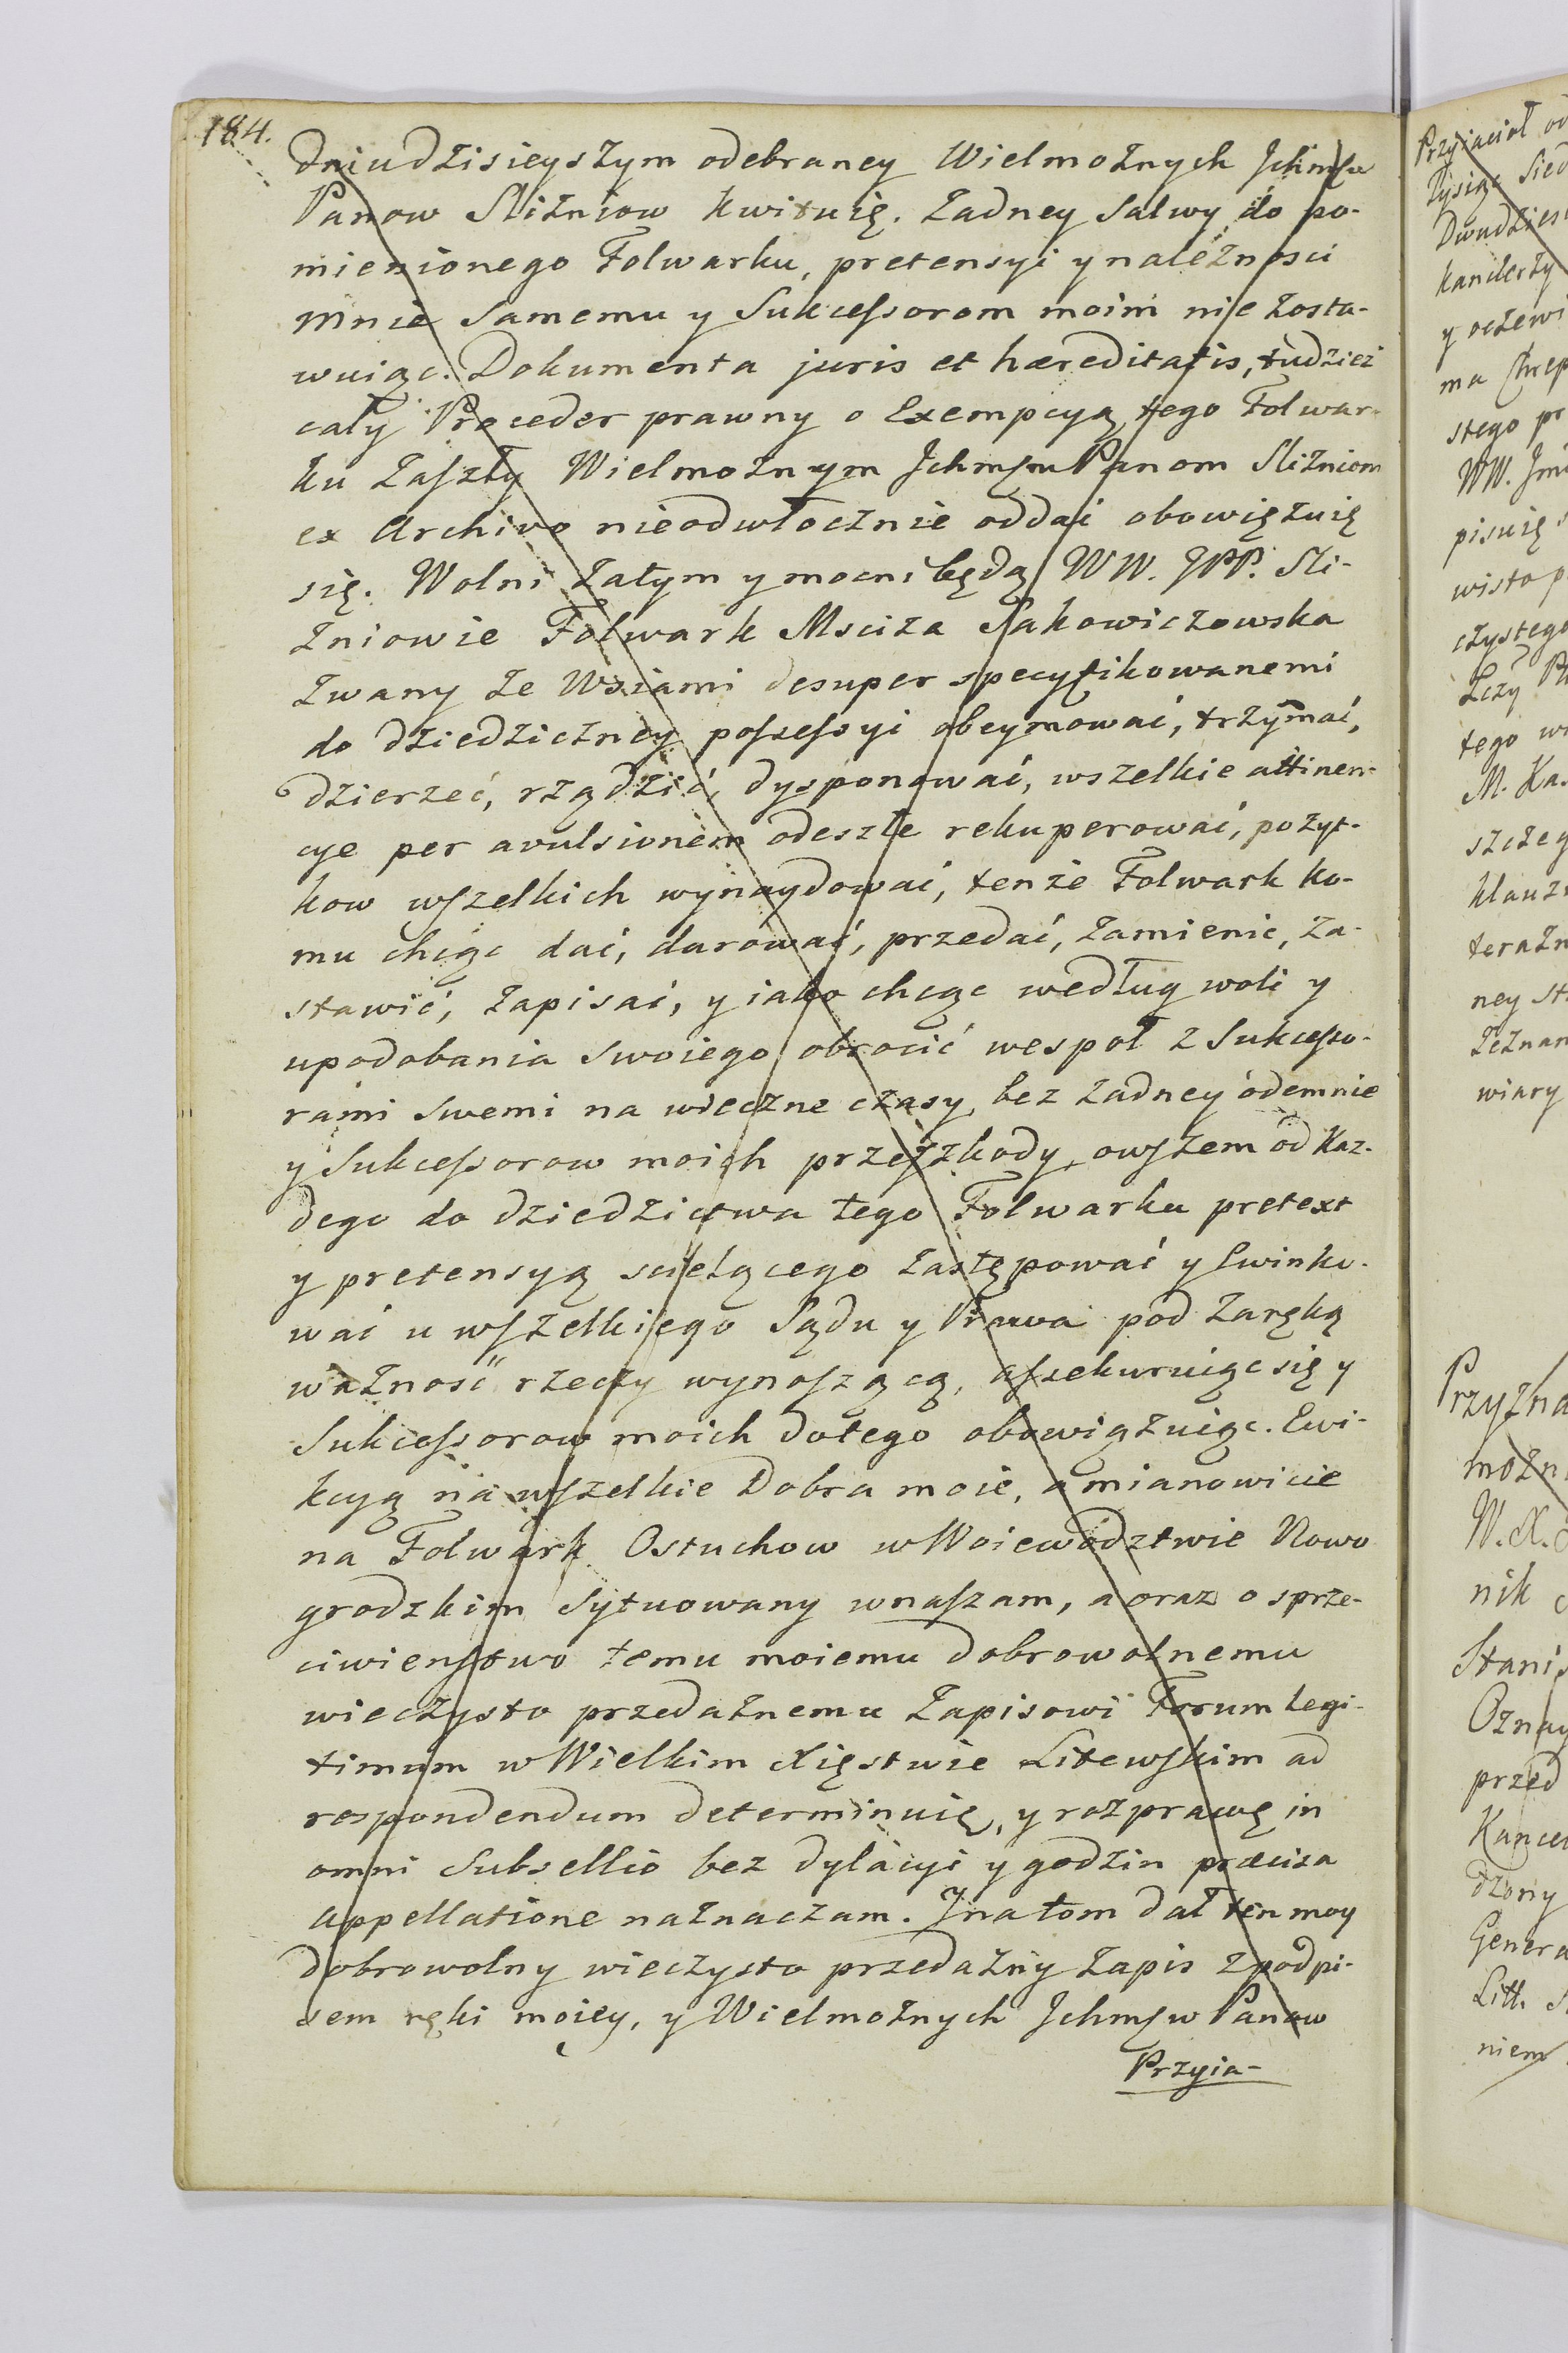 184.
dniudzisieyszym odebraney Wielmożnych Jchmsw
Panow Sliźniow kwituię. Żadney Salwy do po-
mienionego Folwarku, pretensyi y należnosci
mnie Samemu y Sukcessorom moim nie zosta-
wuiąc. Dokumenta juris et hæreditatis, tudziez
cały Proceder prawny o Exempcyą tego Folwar-
ku zaszły Wielmożnym Jchmsm Panom Sliźniom
ex Archivo nieodwłocznie oddać obowięzuię
się. Wolni zatym y mocni będą WW. JPP. Sli-
zniowie Folwark Msciza Sakowiczowska
zwany ze Wsiami desuper specyfikowanemi
do dziedziczney possessyi obeymować, trzymać,
dzierzeć, rządzić, dysponować, wszelkie attinen-
cye per avulsionem odeszłe rekuperować, pożyt-
kow wszelkich wynaydować, tenże Folwark ko-
mu chcąc dać, darować, przedać, zamienic, za-
stawić, zapisać, y iako chcąc według woli y
upodobania swoiego obrocić wespoł z Sukcesso-
rami swemi na wieczne czasy, bez żadney odemnie
y Sukcessorow moich przeszkody, owszem od Kaz-
dego do dziedzictwa tego Folwarku pretext
y pretensyą scielącego zastępować y Ewinko-
wać u wszelkiego Sądu y Prawa pod zaręką
ważność rzeczy wynoszącą, assekuruiąc się y
Sukcessorow moich dotego obowiązuiąc. Ewi-
kcyą na wszelkie Dobra moie, a mianowicie
na Folwark Ostuchow w Woiewodztwie Nowo
grodzkim Sytuowany wnaszam, a oraz o sprze-
ciwienstwo temu moiemu dobrowolnemu
wieczysto przedażnemu Zapisowi Forum Legi-
timum w Wielkim Xięstwie Litewskim ad
respondendum determinuię, y rozprawę in
omni Subsellio bez dylacyi y godzin præcisa
appellatione naznaczam. Jnatom dał ten moy
dobrowolny wieczysto przedażny zapis z podpi-
sem ręki moiey, y Wielmożnych Jchmsw Panow
Przyia-
Przyiacioł od
Tysiąc Sied
Dwudzies
kanclerzy
ma
stego pr
WW. Jm
pisuię s
wisto p
czystego
tego w
M. Kas
szczeg
klauzu
teraźn
ney St
Zeznan
wiary
Przyzna
możn
W. X.
nik
Stanis
Oznay
przed
Kance
dzony
Genera
Litt. S
niem